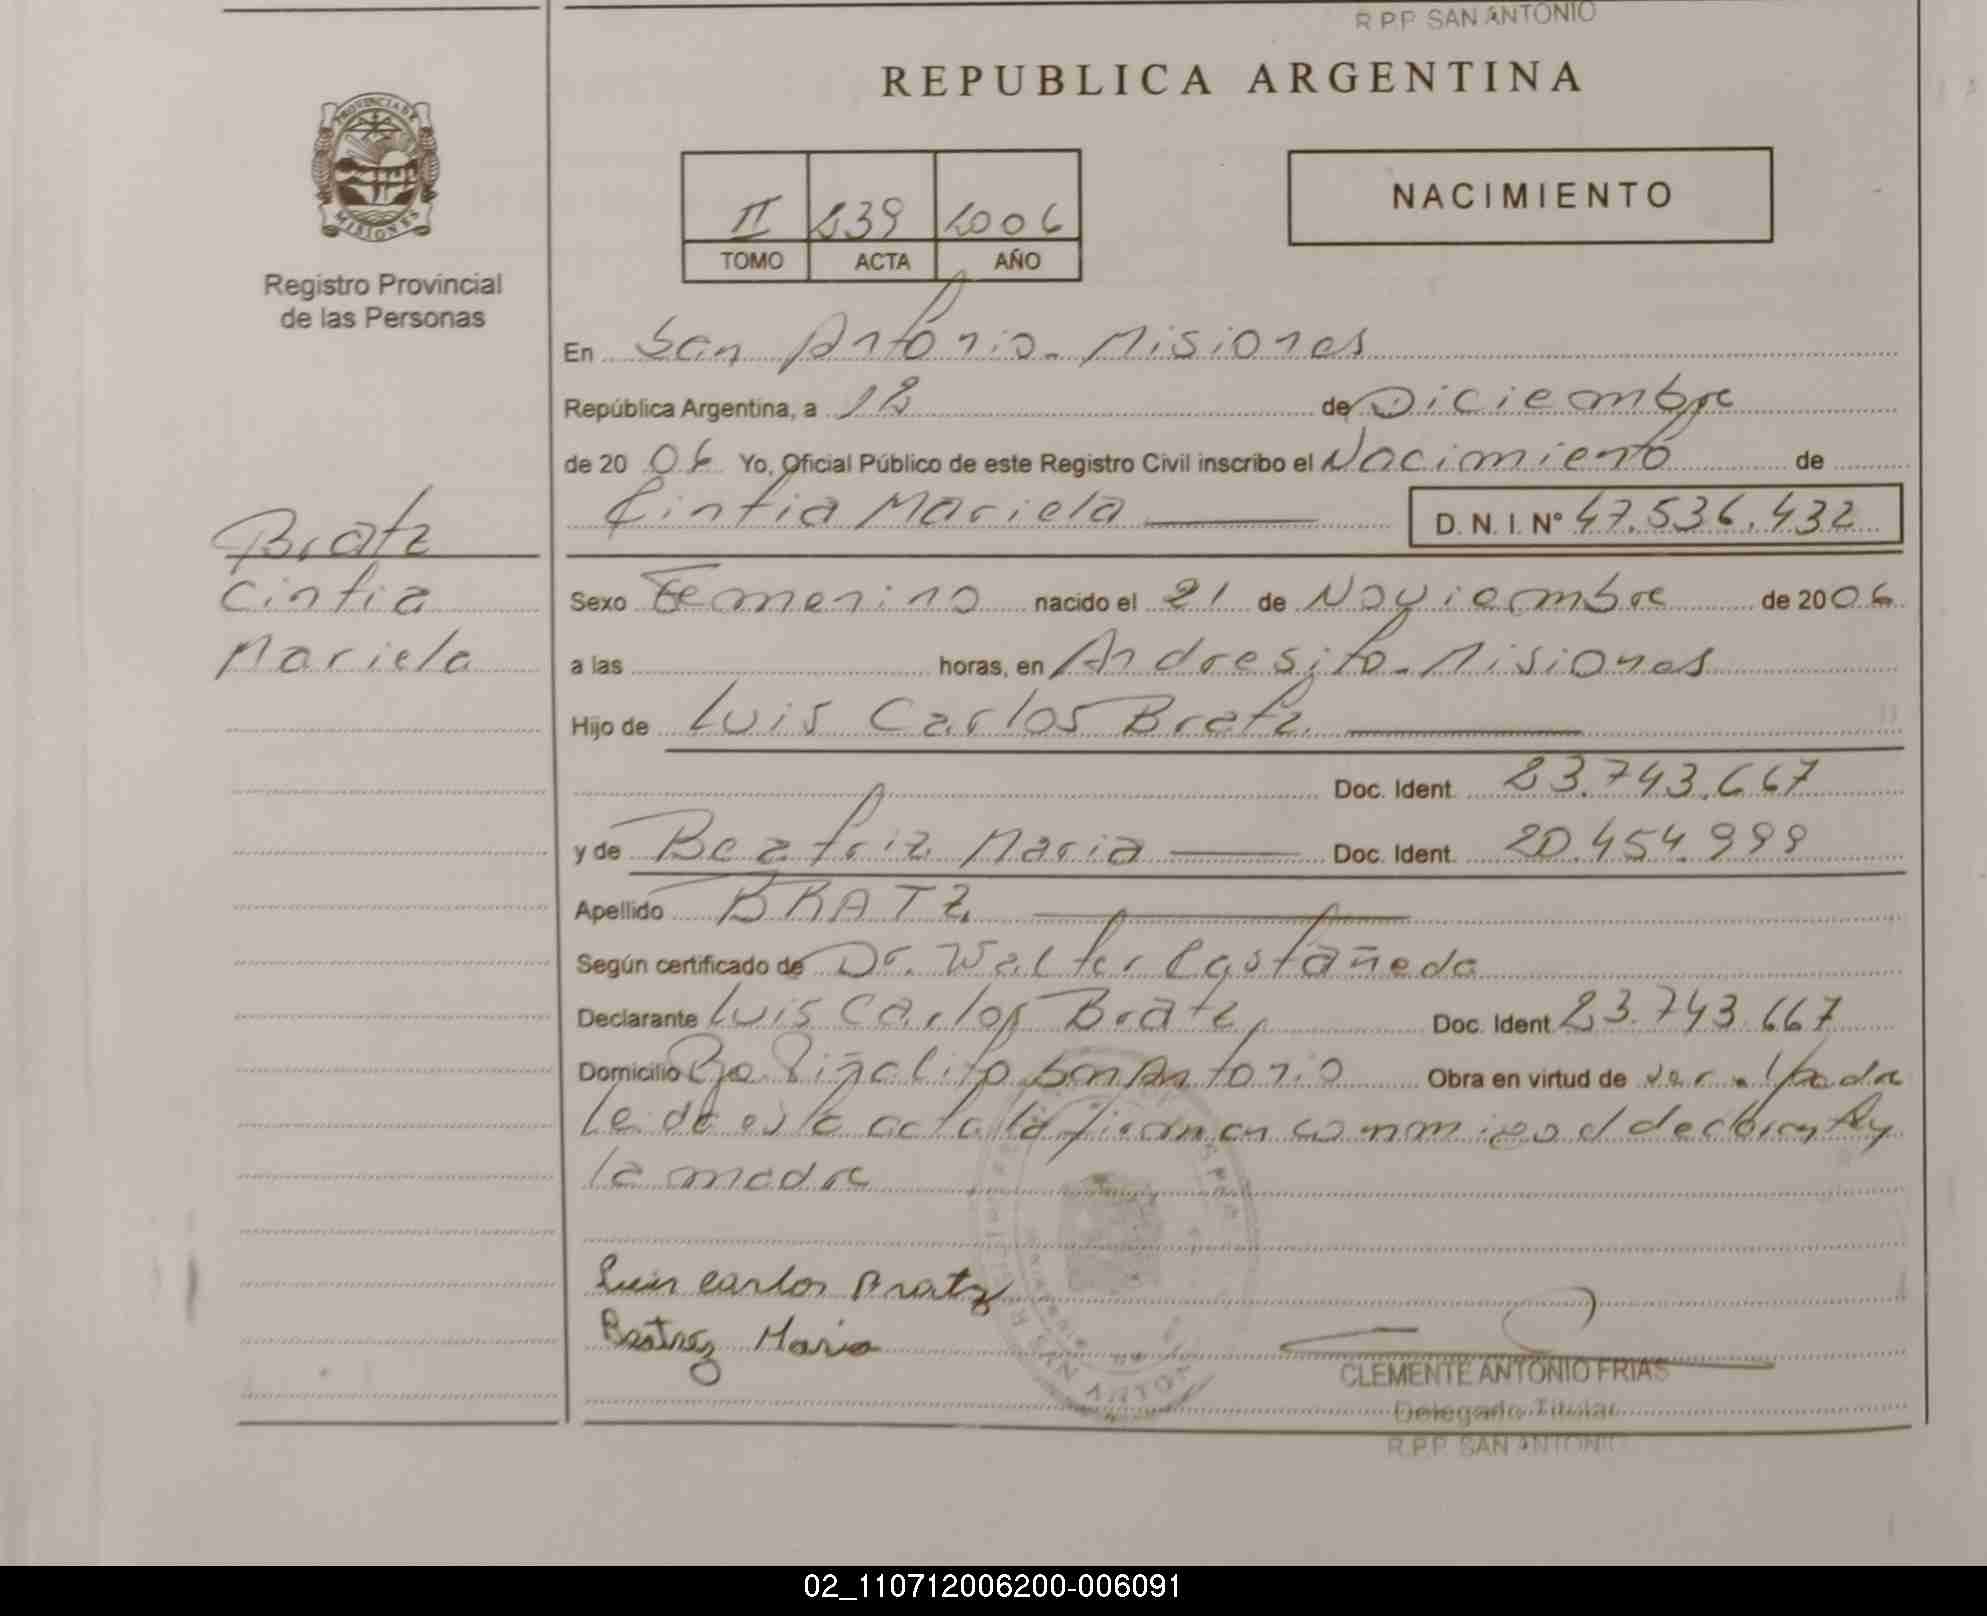 R.P.P. SAN ANTONIO
REPUBLICA ARGENTINA
PROVINCIA DE
MISIONES
Registro Provincial
de las Personas
II 239 2006
TOMO ACTA AÑO
NACIMIENTO
En San Antonio - Misiones
República Argentina, a 12 de Diciembre
de 20 06 Yo, Oficial Público de este Registro Civil inscribo el Nacimiento de
Cintia Mariela D. N. I. Nº 47.536.432
Bratz
Cintia
Mariela
Sexo Femenino nacido el 21 de Noviembre de 20 06
a las horas, en Andresito - Misiones
Hijo de Luis Carlos Bratz
Doc. Ident. 23.743.667
y de Beatriz Maria Doc. Ident. 20.454.999
Apellido BRATZ
Según certificado de Dr. Walter Castañeda
Declarante Luis Carlos Bratz Doc. Ident 23.743.667
Domicilio Bo Piñalito San Antonio Obra en virtud de ser el padre
Leida esta acta la firman conmigo el declarante y
la madre
Luis Carlos Bratz
Beatriz Maria
CLEMENTE ANTONIO FRIAS
Delegado Titular
R.P.P. SAN ANTONIO
02_110712006200-006091